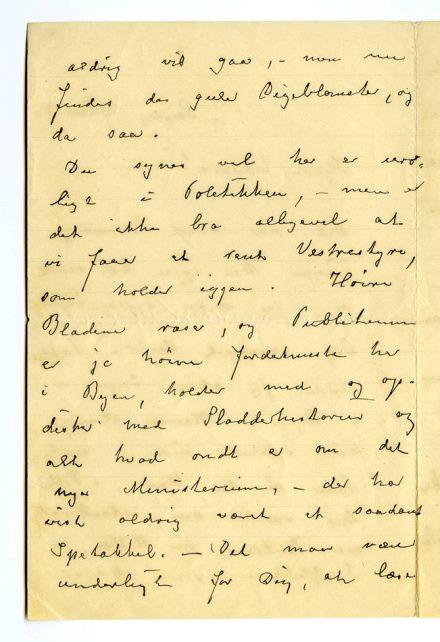 aldrig vil gaa, – men nu
findes das gule Digeblomster, og
da saa.
Du synes vel her er uro-
ligt i Politikken, – men er
det ikke bra alligevel at
vi faaer et rent Venstrestyre,
som holder iggen. Høire
Bladene raser, og Publikum
er jo høire fordetmeste her
i Byen, holder med og op-
disker med Sladderhistorier og
alt hvad ondt er om det
nye Ministerium, – der har
vist aldrig været et saadant
Spetakkel. – Det maa være
underligt for Dig, at læse